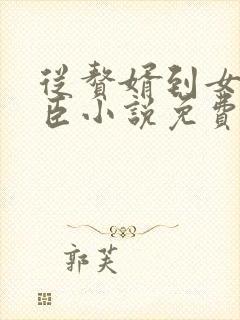 從贅婿到女
臣小説免費
郭芙